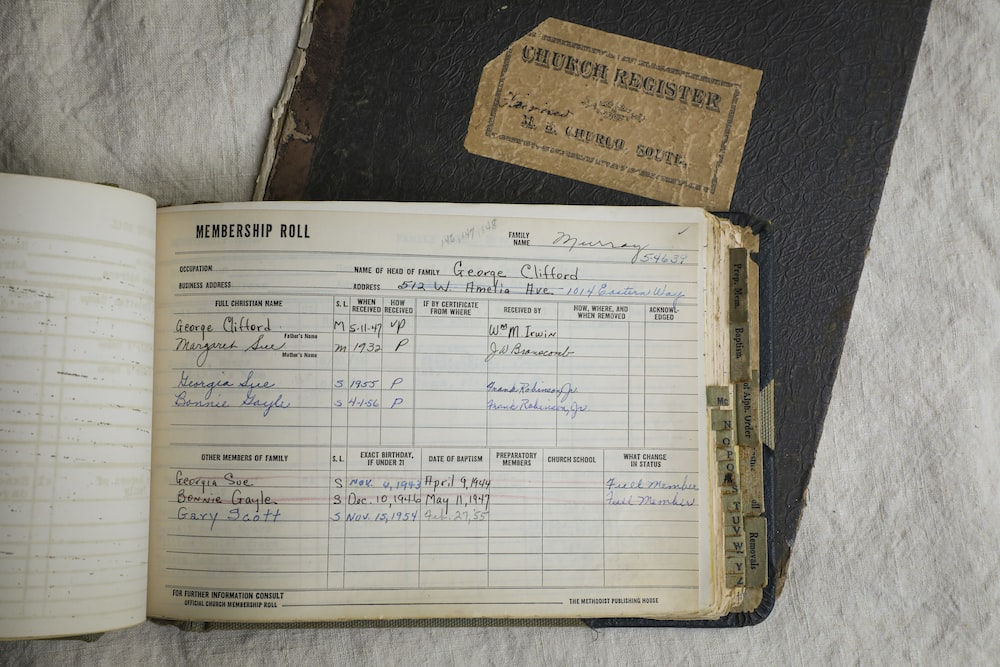 CHURCH REGISTER
M. E. CHURCH SOUTH.
MEMBERSHIP ROLL
FAMILY NAME Murray
54639
OCCUPATION
NAME OF HEAD OF FAMILY George Clifford
BUSINESS ADDRESS
ADDRESS 512 W. Amelia Ave. - 1014 Eastern Way
FULL CHRISTIAN NAME S. L. WHEN RECEIVED HOW RECEIVED IF BY CERTIFICATE FROM WHERE RECEIVED BY HOW, WHERE, AND WHEN REMOVED ACKNOWLEDGED
George Clifford M 5-11-47 VP Wm M Irwin
Father's Name
Margaret Sue M 1932 P J.W. Branscomb
Mother's Name
Georgia Sue S 1955 P Frank Robinson, Jr.
Bonnie Gayle S 4-1-56 P Frank Robinson, Jr.
OTHER MEMBERS OF FAMILY S. L. EXACT BIRTHDAY, IF UNDER 21 DATE OF BAPTISM PREPARATORY MEMBERS CHURCH SCHOOL WHAT CHANGE IN STATUS
Georgia Sue S Nov. 6, 1943 April 9, 1944 Full Member
Bonnie Gayle S Dec. 10, 1946 May 11, 1947 Full Member
Gary Scott S Nov. 15, 1954 27, 55
FOR FURTHER INFORMATION CONSULT
OFFICIAL CHURCH MEMBERSHIP ROLL
THE METHODIST PUBLISHING HOUSE
Prep. Mem.
Baptism
Alph. Order
Mc
N
O
P
Q
R
T
U
V
W
Y
Z
Removals